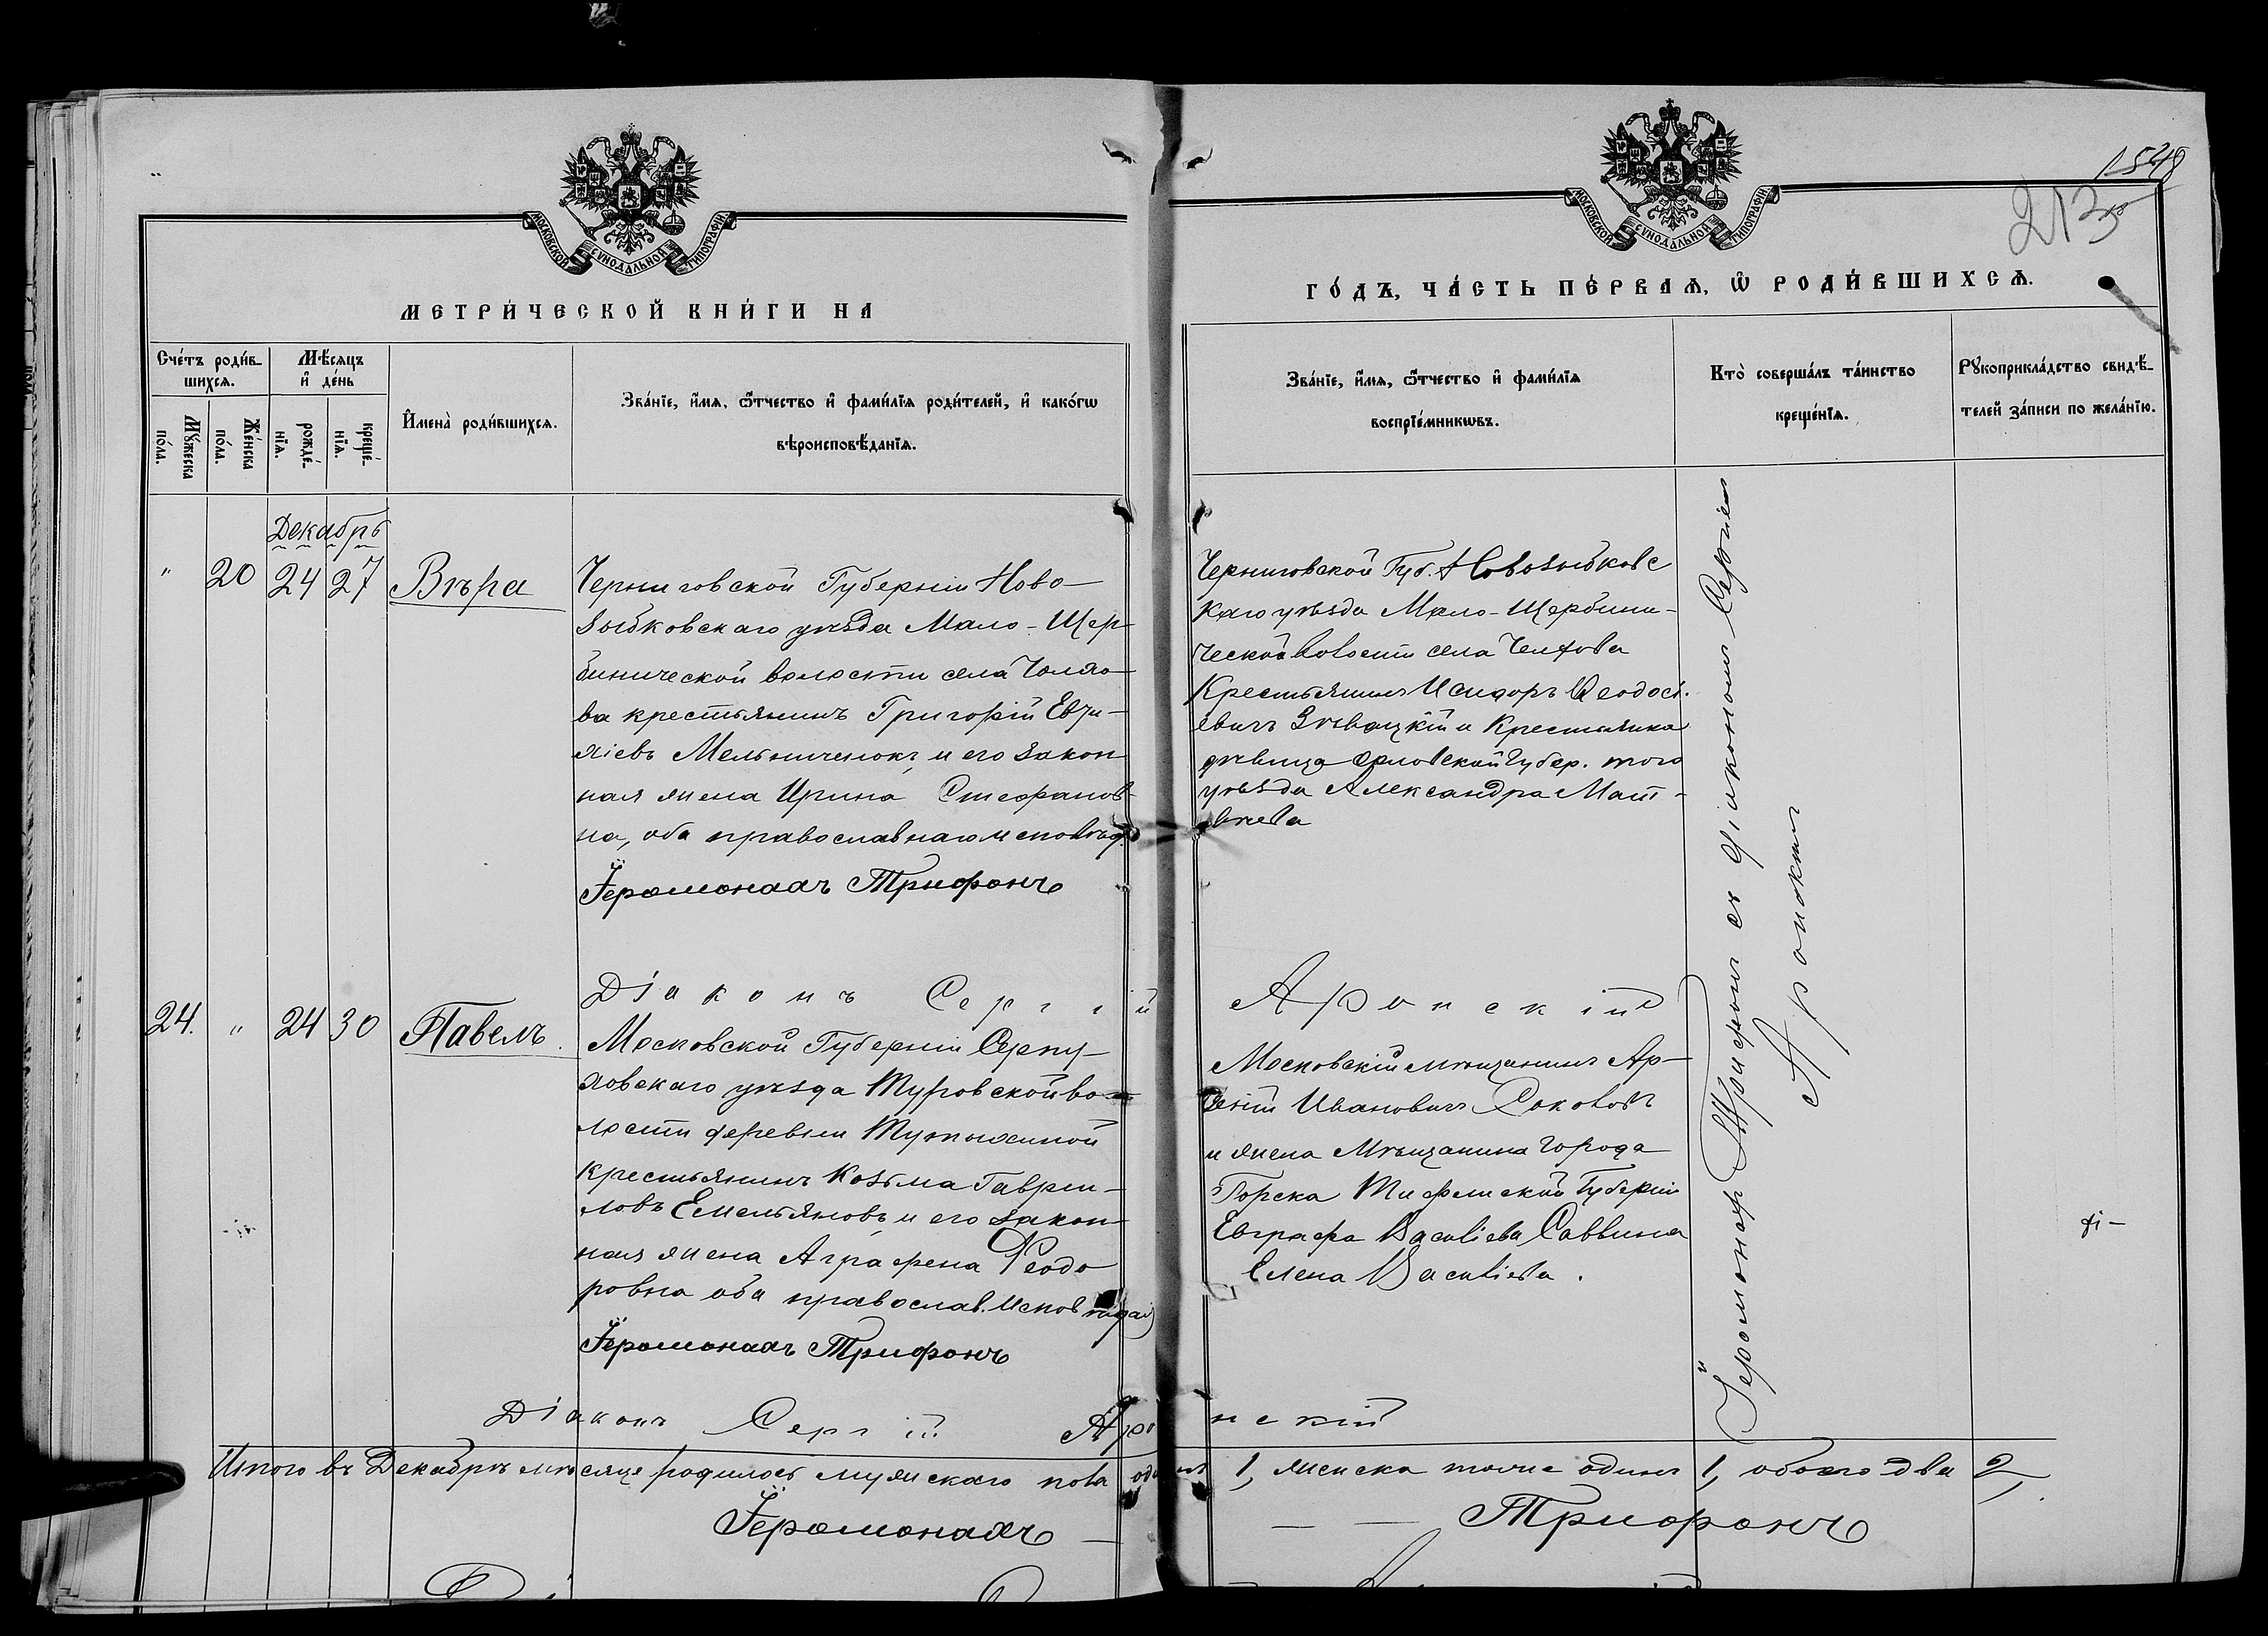 1548
213
МОСКОВСКОЙ СѴНОДАЛЬНОЙ ТИПОГРАФІИ
МОСКОВСКОЙ СѴНОДАЛЬНОЙ ТИПОГРАФІИ
МЕТРИ́ЧЕСКОЙ КНИ́ГИ НА
ГО́ДЪ, ЧА́СТЬ ПЕ́РВАѦ, Ѡ РОДИ́ВШИХСѦ.
Сче́тъ роди́в-
шихсѧ.
Мѣ́сѧцъ
и де́нь
Мꙋ́жеска
по́ла.
Же́нска
по́ла.
рожде́-
нїѧ.
креще́-
нїѧ.
Имена̀ роди́вшихсѧ.
Зва́нїе, и́мѧ, ѻ́тчество и фами́лїѧ роди́телей, и како́гѡ
вѣроисповѣ́данїѧ.
Зва́нїе, и́мѧ, ѻ́тчество и фами́лїѧ
воспрїе́мникѡвъ.
Кто̀ соверша́лъ та́инство
креще́нїѧ.
Рꙋкоприкла́дство свидѣ́-
телей за́писи по жела́нїю.
Декабрь
" 20 24 27 Вѣра
Черниговской Губерніи Ново-
зыбковскаго уѣзда Мало-Щер
бинической волости села Чолхо-
ва крестьянинъ Григорій Евѳи-
міевъ Мельниченокъ, и его закон
ная жена Ирина Стефанов-
на, оба православнаго исповѣд.
Іеромонахъ Трифонъ
Діаконъ Сергій Аронскій
Черниговской Губ. Новозыбковс
каго уѣзда Мало-Щербини-
ческой волости села Челхова
Крестьянинъ Исидоръ Ѳеодось
евичъ и Крестьянка
дѣвица Орловской Губер. того
уѣзда Александра Мат-
вѣева
Іеромонах Трифонъ съ діакономъ Сергіем
Аронским
24. " 24 30 Павелъ.
Московской Губерніи Серпу-
ховскаго уѣзда Туровской во-
лости деревни
крестьянинъ Козьма Гаври-
ловъ Емельяновъ и его закон-
ная жена Аграфена Ѳеодо
ровна оба православ. исповѣдай
Іеромонахъ Трифонъ
Діаконъ Сергій Аронскій
Московскій мѣщанинъ Ар-
сеній Ивановичъ Соколовъ
и жена Мѣщанина города
Горска Тифлиской Губерніи
Евграфа Васильева Саввина
Елена Васильева.
Итого въ Декабрѣ мѣсяцѣ родилось мужскаго пола одинъ 1, женска тоже одинъ 1, обоего два 2,
Іеромонахъ — — — Трифонъ